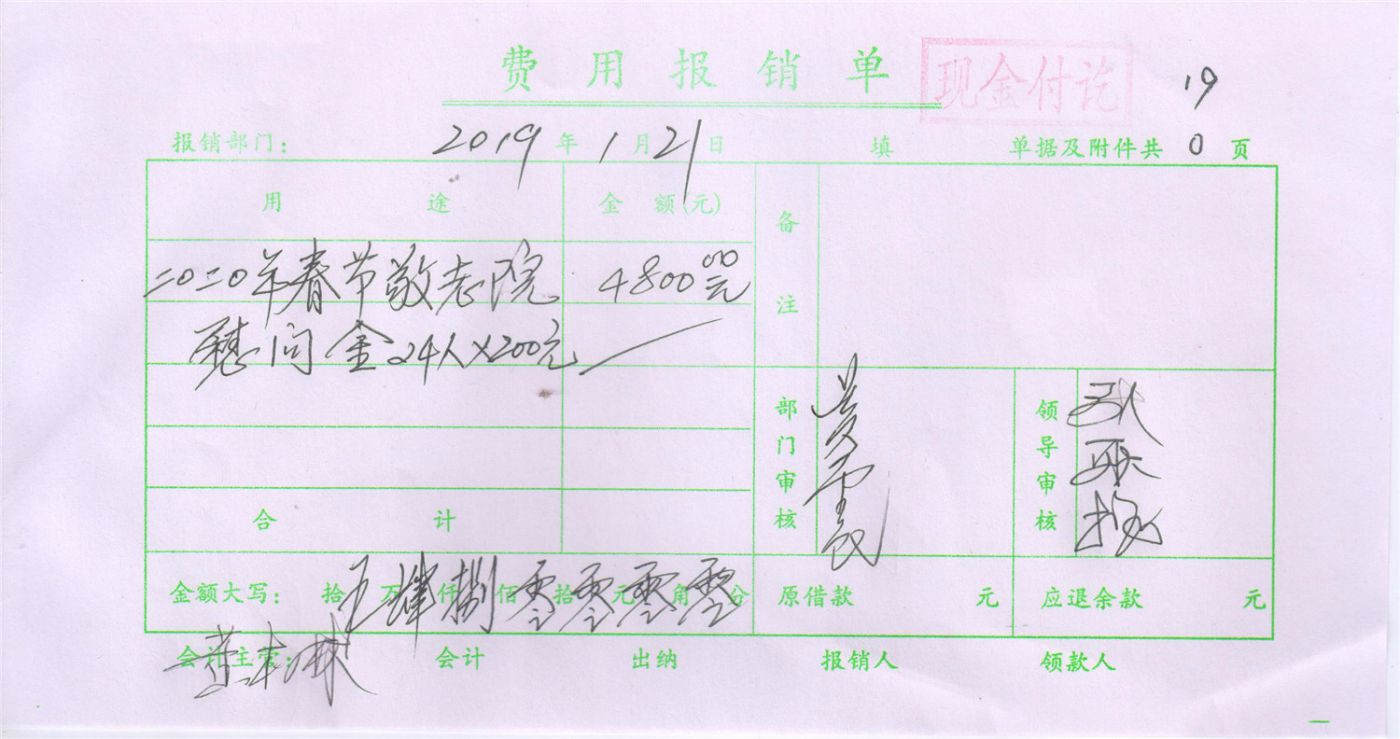 费用报销单
现金付讫
19
报销部门: 2019年1月21日 填 单据及附件共0页
用途 金额(元) 备注
二〇二〇年春节敬老院 4800.00元
慰问金24人×200元
部门审核 领导审核
合计
金额大写: 拾万肆仟捌佰零拾零元零角零分 原借款 元 应退余款 元
会计主管: 会计 出纳 报销人 领款人